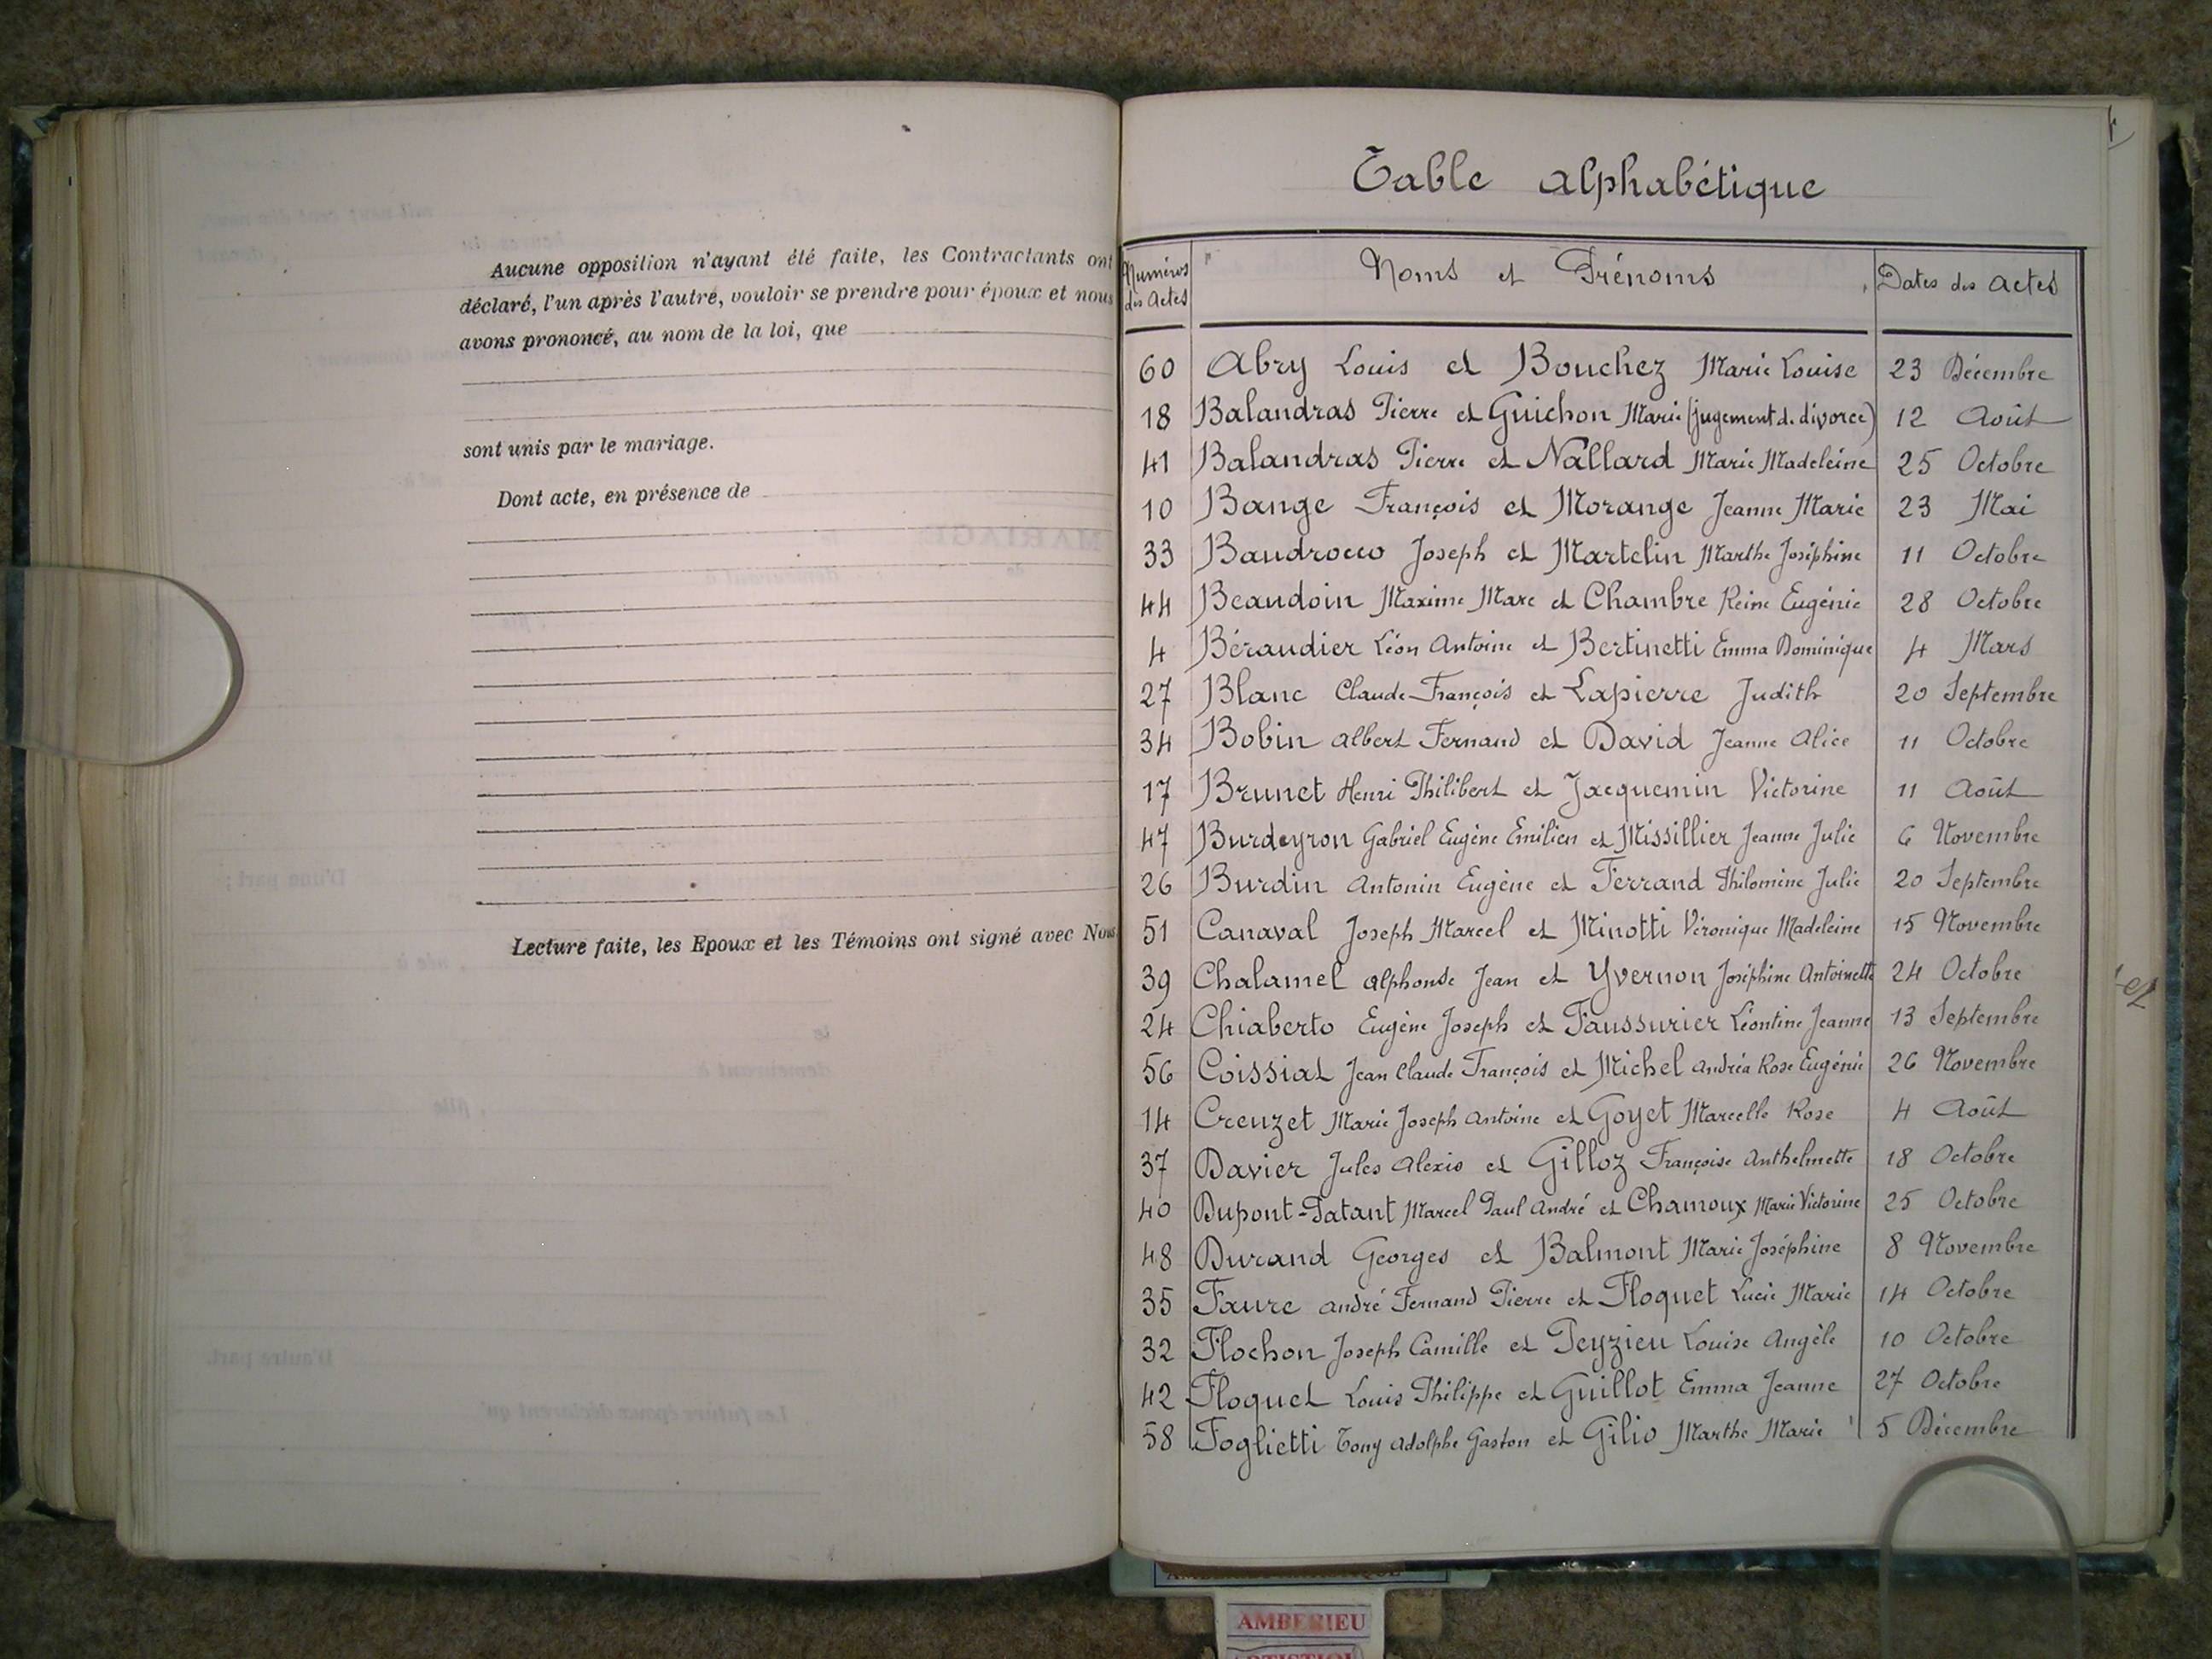 Aucune opposition n'ayant été faite, les Contractants ont
déclaré, l'un après l'autre, vouloir se prendre pour époux et nous
avons prononcé, au nom de la loi, que
sont unis par le mariage.
Dont acte, en présence de
Lecture faite, les Epoux et les Témoins ont signé avec Nous
Table alphabétique
Numéros des Actes Noms et Prénoms Dates des Actes
60 Abry Louis et Bouchez Marie Louise 23 Décembre
18 Balandras Pierre et Guichon Marie (jugement de divorce) 12 Août
41 Balandras Pierre et Nallard Marie Madeleine 25 Octobre
10 Bange François et Morange Jeanne Marie 23 Mai
33 Baudrocco Joseph et Martelin Marthe Joséphine 11 Octobre
44 Beaudoin Maxime Marc et Chambre Reine Eugénie 28 Octobre
4 Béraudier Léon Antoine et Bertinetti Emma Dominique 4 Mars
27 Blanc Claude-François et Lapierre Judith 20 Septembre
34 Bobin Albert Fernand et David Jeanne Alice 11 Octobre
17 Brunet Henri Philibert et Jacquemin Victorine 11 Août
47 Burdeyron Gabriel Eugène Emilien et Missillier Jeanne Julie 6 Novembre
26 Burdin Antonin Eugène et Ferrand Philomine Julie 20 Septembre
51 Canaval Joseph Marcel et Minotti Véronique Madeleine 15 Novembre
39 Chalamel Alphonse Jean et Yvernon Joséphine Antoinette 24 Octobre
24 Chiaberto Eugène Joseph et Faussurier Léontine Jeanne 13 Septembre
56 Coissiat Jean Claude François et Michel Andréa Rose Eugénie 26 Novembre
14 Creuzet Marie Joseph Antoine et Goyet Marcelle Rose 4 Août
37 Davier Jules Alexis et Gilloz Françoise Anthelmette 18 Octobre
40 Dupont-Patant Marcel Paul André et Chamoux Marie Victorine 25 Octobre
48 Durand Georges et Balmont Marie Joséphine 8 Novembre
35 Faure André Fernand Pierre et Floquet Lucie Marie 14 Octobre
32 Flochon Joseph Camille et Peyzieu Louise Angèle 10 Octobre
42 Floquet Louis Philippe et Guillot Emma Jeanne 27 Octobre
58 Foglietti Tony Adolphe Gaston et Gilio Marthe Marie 5 Décembre
AMBERIEU